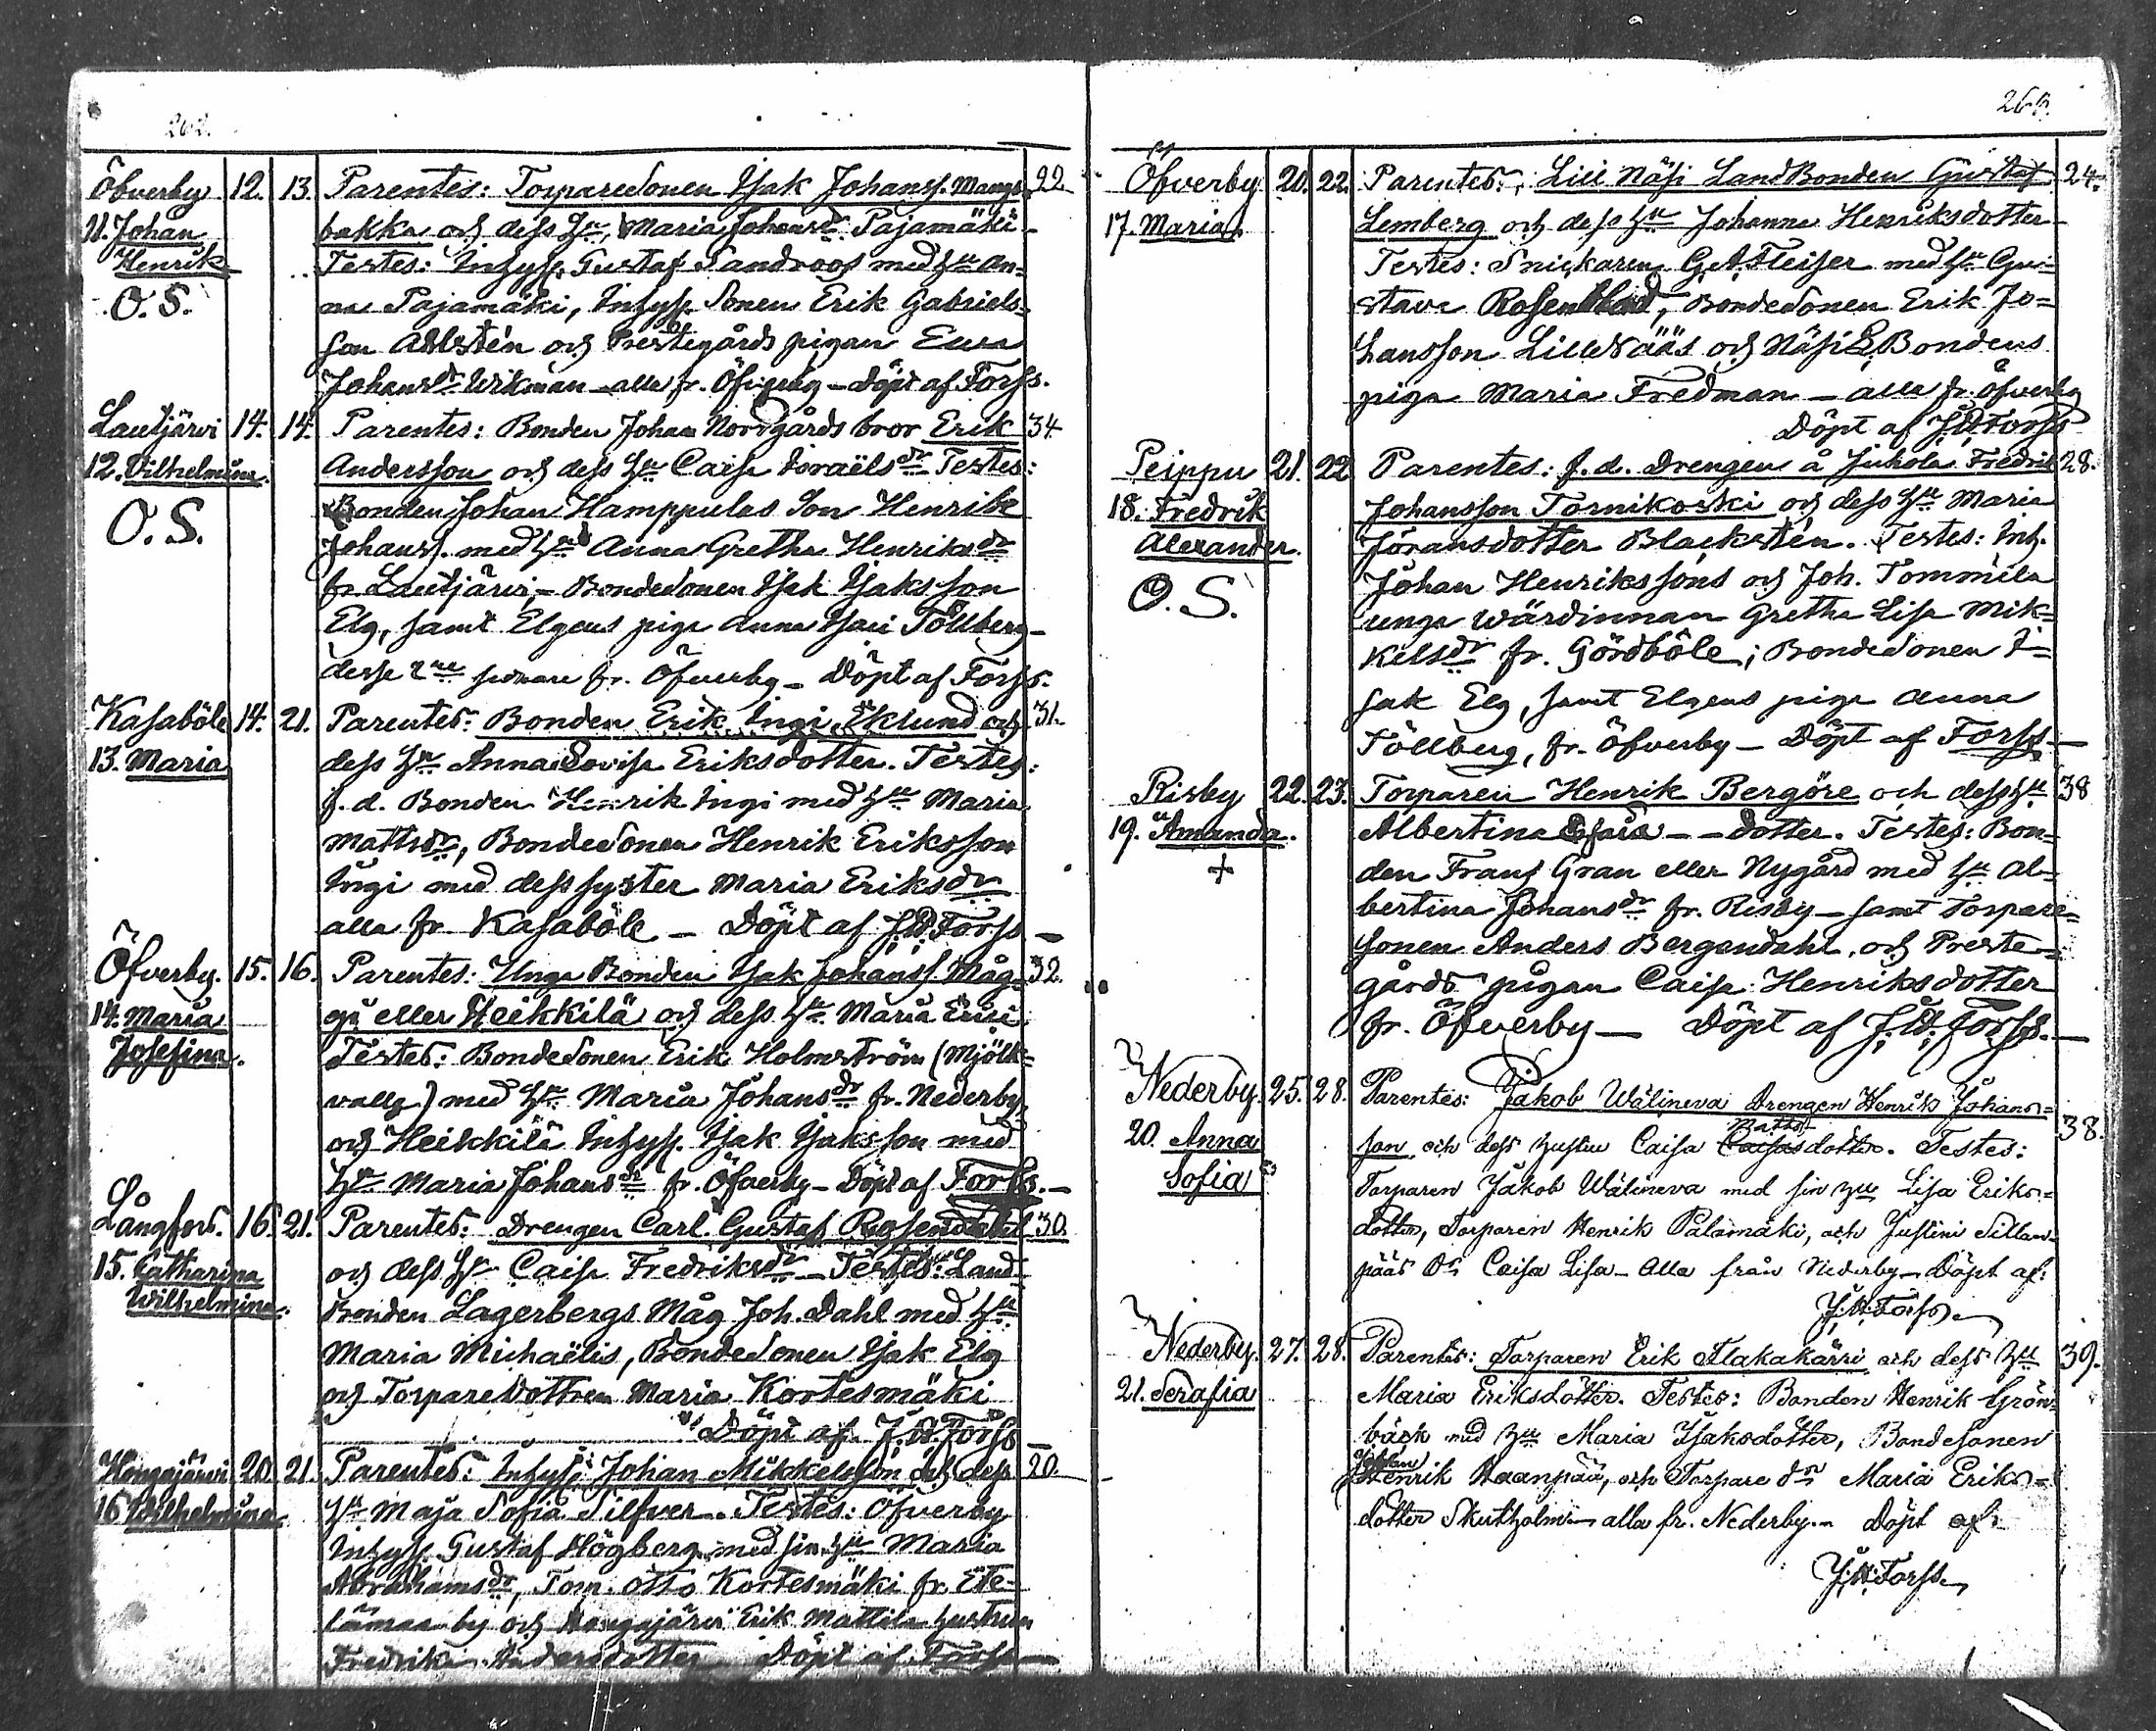 262.
Öfverby 12. 13. Parentes: Torparesonen Isak Johanss. Mangs- 22
11. Johan bakka och dess H:u, Maria Johansdr Pajamäki
Henrik Testes: Inhyss. Gustaf Sandroos med H:u An-
O. S. na Pajamäki, Inhyss. Sonen Erik Gabriels-
son Ahlstén och Prestegårds pigan Eva
Johansdr Wikman – alla fr. Öfverby – Döpt af Forss.
Lautjärvi 14. 14. Parentes: Bonden Johan Norrgårds bror Erik 34.
12. Vilhelmina. Andersson och dess H:u Caisa Israëlsdr Testes:
O. S. Bonden Johan Hamppulas Son Henrik
Johanss. med H:u Anna Gretha Henriksdr
fr. Lautjärvi, – Bondesonen Isak Isaksson
Elg, samt Elgens piga Anna Töllberg –
desse 2ne senare fr. Öfverby – Döpt af Forss.
Kasaböle 14. 21. Parentes: Bonden Erik Ingi Eklund och 31.
13. Maria dess H:u Anna Lovisa Eriksdotter. Testes:
f. d. Bonden Henrik Ingi med H:u Maria
Mattsdr, Bondesonen Henrik Eriksson
Ingi med dess syster Maria Eriksdr
alla fr. Kasaböle – Döpt af J. W. Forss –
Öfverby. 15. 16. Parentes: Unga Bonden Isak Johanss. Måg- 32.
14. Maria gi eller Heikkilä och dess H:u Maria Erici
Josefina. Testes: Bondesonen Erik Holmström (Mjölk-
valla) med H:u Maria Johansdr fr. Nederby,
och Heikkilä Inhyss. Isak Isaksson med
H:u Maria Johansdr fr. Öfverby – Döpt af Forss. –
Långfors. 16. 21. Parentes: Drengen Carl Gustaf Rosendahl 30.
15. Catharina och dess H:u Caisa Fredriksdr – Testes: Land-
Wilhelmina. Bonden Lagerbergs Måg Joh. Dahl med H:u
Maria Michaëlis, Bondesonen Isak Elg
och Torparedottren Maria Kortesmäki
Döpt af J. W. Forss
Hongajärvi 20. 21. Parentes: Inhyss. Johan Mikkelsson och dess 20.
16 Wilhelmina. H:u Maja Sofia Silfver. Testes: Öfverby
Inhyss. Gustaf Högberg med sin H:u Maria
Abrahamsdr, Torp. Otto Kortesmäki fr. Ete-
lämaa by och Hongajärvi Erik Mattila hustrun
Fredrika Andersdotter Döpt af Forss –
263.
Öfverby 20. 22. Parentes: Lill Näsi LandBonden Gustaf 24.
17. Maria. Lemberg och dess H:u Johanna Henriksdotter
Testes: Snickaren G. A. Fleiser med H:u Gu-
stava Rosenblad, Bondesonen Erik Jo-
hansson LilleNääs och Näsi L. Bondens
piga Maria Fredman – alla fr. Öfverby
Döpt af J. W. Forss
Peippu 21. 22 Parentes: f. d. Drengen å Juhola Fredrik 28.
18. Fredrik Johansson Tornikoski och dess H:u Maria
Alexander. Jöransdotter Blackstén. Testes: Inh.
O. S. Johan Henrikssons och Joh. Tommila
unga wärdinnan Gretha Lisa Mik-
kelsdr fr. Gördböle; Bondesonen I-
sak Elg, samt Elgens piga Anna
Töllberg, fr. Öfverby – Döpt af Forss. –
Risby 22. 23. Torparen Henrik Bergöre och dess H:u 38
19. Amanda. Albertina – – dotter. Testes: Bon-
+ den Frans Gran eller Nygård med H:u Al-
bertina Johansdr fr. Risby – samt Torpare-
sonen Anders Bergendahl, och Preste-
gårds pigan Caisa Henriksdotter
fr. Öfverby – Döpt af J. W. Forss. –
Nederby. 25. 28. Parentes: Jakob Wälineva Drengen Henrik Johans- 38.
20. Anna son och dess hustru Caisa Caisas Matts dotter. Testes:
Sofia Torparen Jakob Wälineva med sin H:u Lisa Eriks-
dotter, Torparen Henrik Palomäki, och Justini Sillan-
pääs Dr Caisa Lisa – Alla från Nederby – Döpt af:
J. W. Forss –
Nederby. 27. 28. Parentes: Torparen Erik Flakakärri och dess H:u 39.
21. Serafia Maria Eriksdotter. Testes: Bonden Henrik Grön-
bäck med H:u Maria Isaksdotter, Bondesonen
Johan Henrik Haanpää, och Torpare dr Maria Eriks-
dotter Skutholm – alla fr. Nederby. – Döpt af:
J. W. Forss –